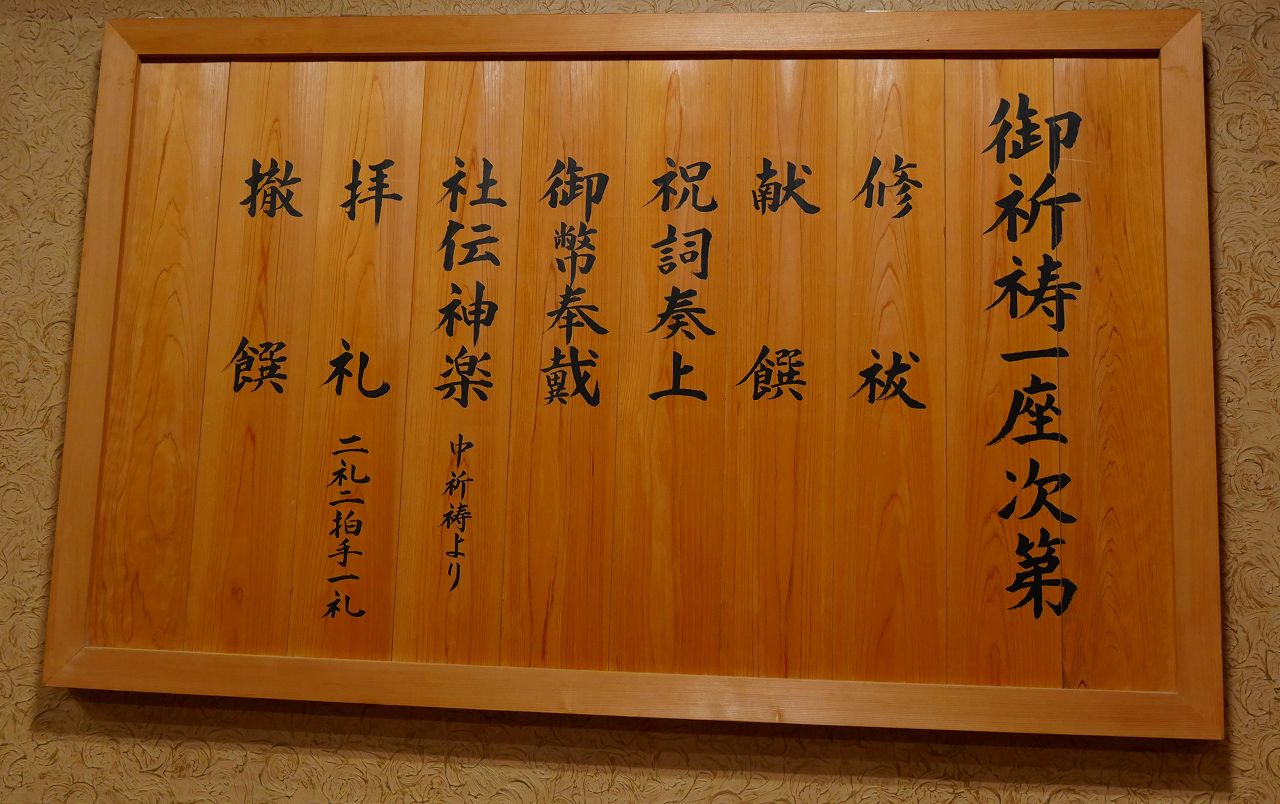 御祈祷一座次第
修祓
献饌
祝詞奏上
御幣奉戴
社伝神楽 中祈祷より
拝礼 二礼二拍手一礼
撤饌